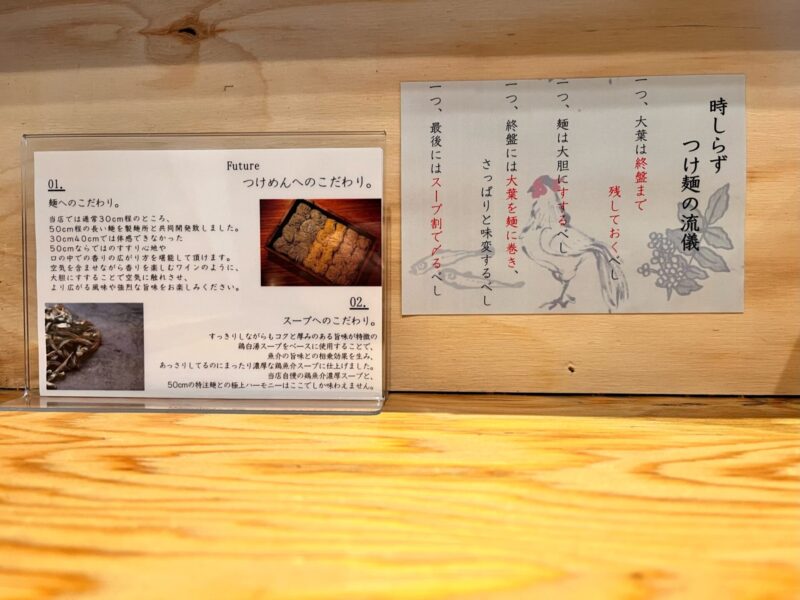 Future
つけめんへのこだわり。
01.
麺へのこだわり。
当店では通常30cm程のところ、
50cm程の長い麺を製麺所と共同開発致しました。
30cm40cmでは体感できなかった
50cmならではのすすり心地や
口の中での香りの広がり方を堪能して頂けます。
空気を含ませながら香りを楽しむワインのように、
大胆にすすることで空気に触れさせ、
より広がる風味や強烈な旨味をお楽しみください。
02.
スープへのこだわり。
すっきりしながらもコクと厚みのある旨味が特徴の
鶏白湯スープをベースに使用することで、
魚介の旨味との相乗効果を生み、
あっさりしてるのにまったり濃厚な鶏魚介スープに仕上げました。
当店自慢の鶏魚介濃厚スープと、
50cmの特注麺との極上ハーモニーはここでしか味わえません。
時しらず
つけ麺の流儀
一つ、大葉は終盤まで
残しておくべし
一つ、麺は大胆にすするべし
一つ、終盤には大葉を麺に巻き、
さっぱりと味変するべし
一つ、最後にはスープ割で〆るべし